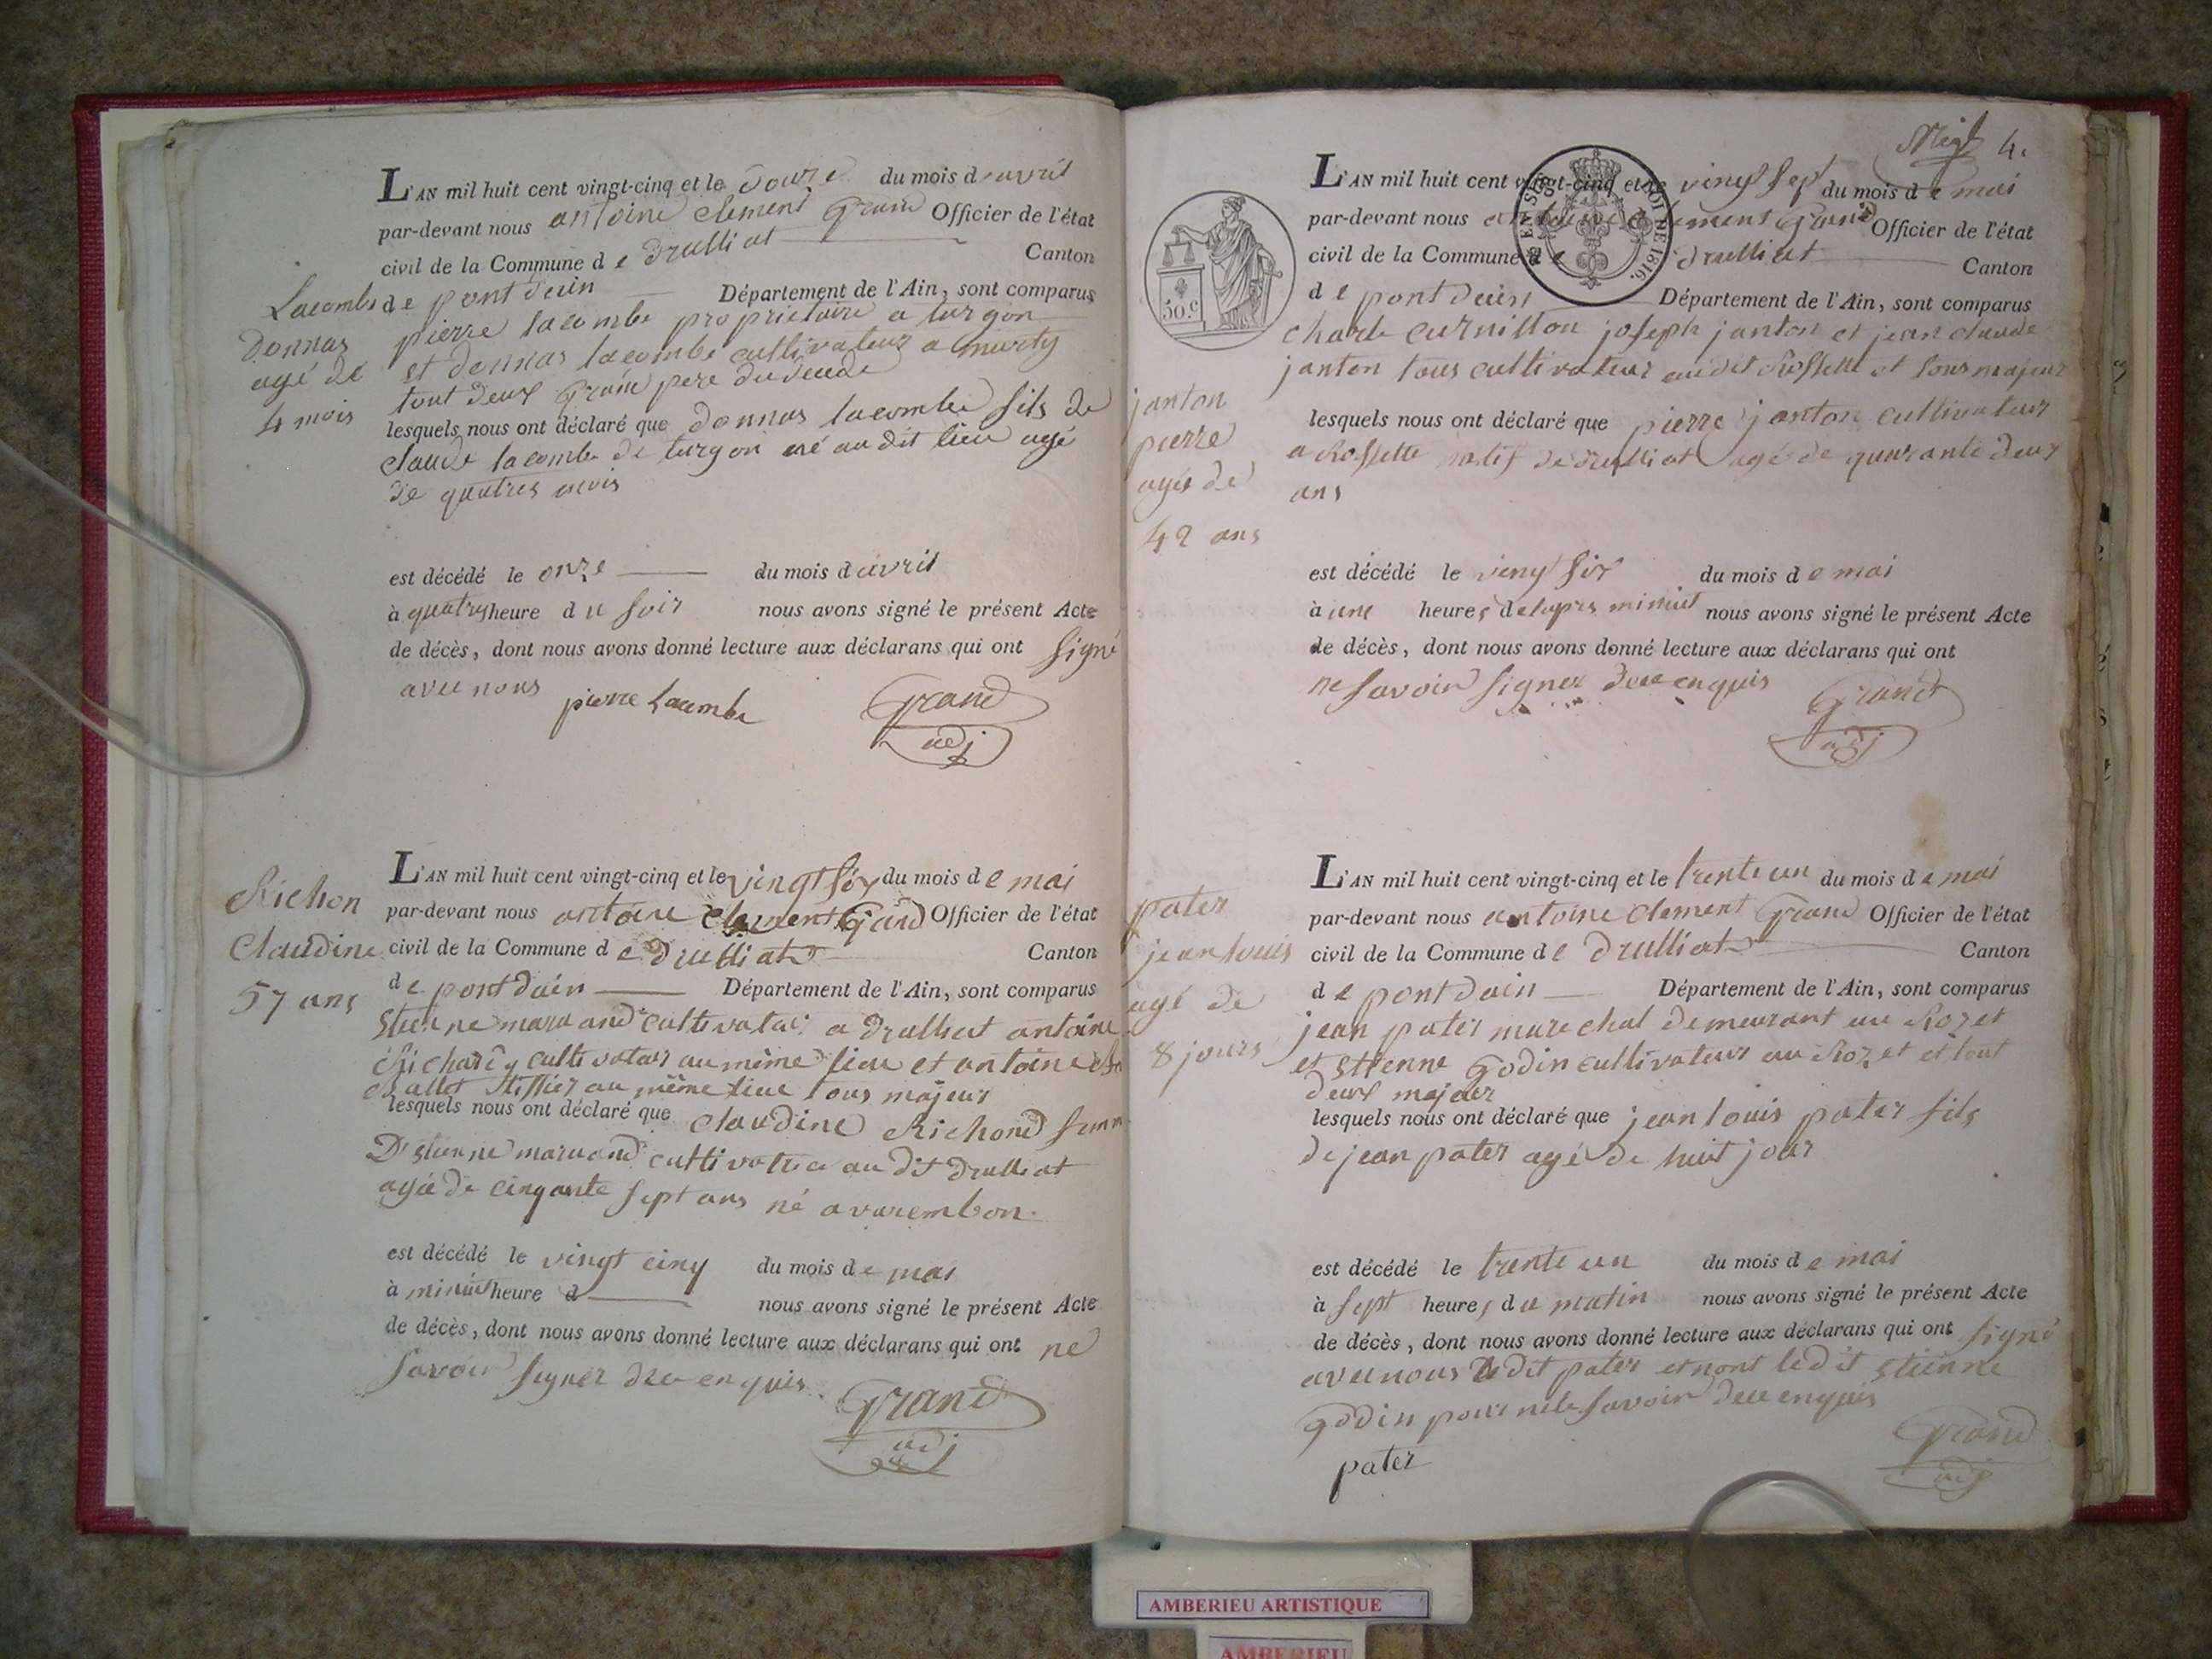 L'AN mil huit cent vingt-cinq et le douze du mois d avril
par-devant nous antoine clement Grand Officier de l'état
civil de la Commune d e Druilliat Canton
de pont dain Département de l'Ain, sont comparus
pierre lacombe proprietaire a turgon
et donnas lacombe cultivateur a
tout deux Grand pere du
lesquels nous ont déclaré que donnas lacombe fils de
claude lacombe de turgon né au dit lieu agé
de quatres mois
Lacombe
Donnas
agé de
4 mois
est décédé le onze du mois d avril
à quatres heure d u soir nous avons signé le présent Acte
de décès, dont nous avons donné lecture aux déclarans qui ont signé
avec nous
pierre Lacombe Grand
adj
Richon
Claudine
57 ans
L'AN mil huit cent vingt-cinq et le vingt six du mois d e mai
par-devant nous antoine clement Grand Officier de l'état
civil de la Commune d e Druilliat Canton
d e pont dain Département de l'Ain, sont comparus
Stienne maruand cultivateur a Drulliat antoine
cultivateur au même lieu et antoine
au même lieu tous majeur
lesquels nous ont déclaré que claudine Richond femm
D'stienne maruand cultivatrice au dit Drulliat
agée de cinqante sept ans né a varembon.
est décédé le vingt cinq du mois d e mai
à minuit heure d nous avons signé le présent Acte
de décès, dont nous avons donné lecture aux déclarans qui ont ne
savoir signer de ce enquis
Grand
adj
Migt 4.
L'AN mil huit cent vingt-cinq et le vingt sept du mois d e mai
par-devant nous antoine clement Grand Officier de l'état
civil de la Commune d e drulliat Canton
d e pont dain Département de l'Ain, sont comparus
EN SUS
LOI DE 1816.
50.c
charle curnillon joseph janton et jean claude
janton tous cultivateur audit Rossette et tous majeur
lesquels nous ont déclaré que pierre janton cultivateur
a Rossette natif de drulliat agé de quarante deux
ans
janton
pierre
agés de
42 ans
est décédé le vingt six du mois d e mai
à une heures de lapres minuit nous avons signé le présent Acte
de décès, dont nous avons donné lecture aux déclarans qui ont
ne savoir signer de ce enquis
Grand
adj
pater
jean louis
agé de
8 jours
L'AN mil huit cent vingt-cinq et le trente un du mois d e mai
par-devant nous antoine clement Grand Officier de l'état
civil de la Commune d e Drulliat Canton
d e pont dain Département de l'Ain, sont comparus
jean pater marechal demeurant au Rozet
et Stienne Godin cultivateur au Rozet et tout
deux majeur
lesquels nous ont déclaré que jean louis pater fils
de jean pater agé de huit jour
est décédé le trente un du mois d e mai
à sept heures d u matin nous avons signé le présent Acte
de décès, dont nous avons donné lecture aux déclarans qui ont signé
avec nous le dit pater et nont le dit stienne
godin pour ne le savoir de ce enquis
pater
Grand
adj
AMBERIEU ARTISTIQUE
AMBERIEU